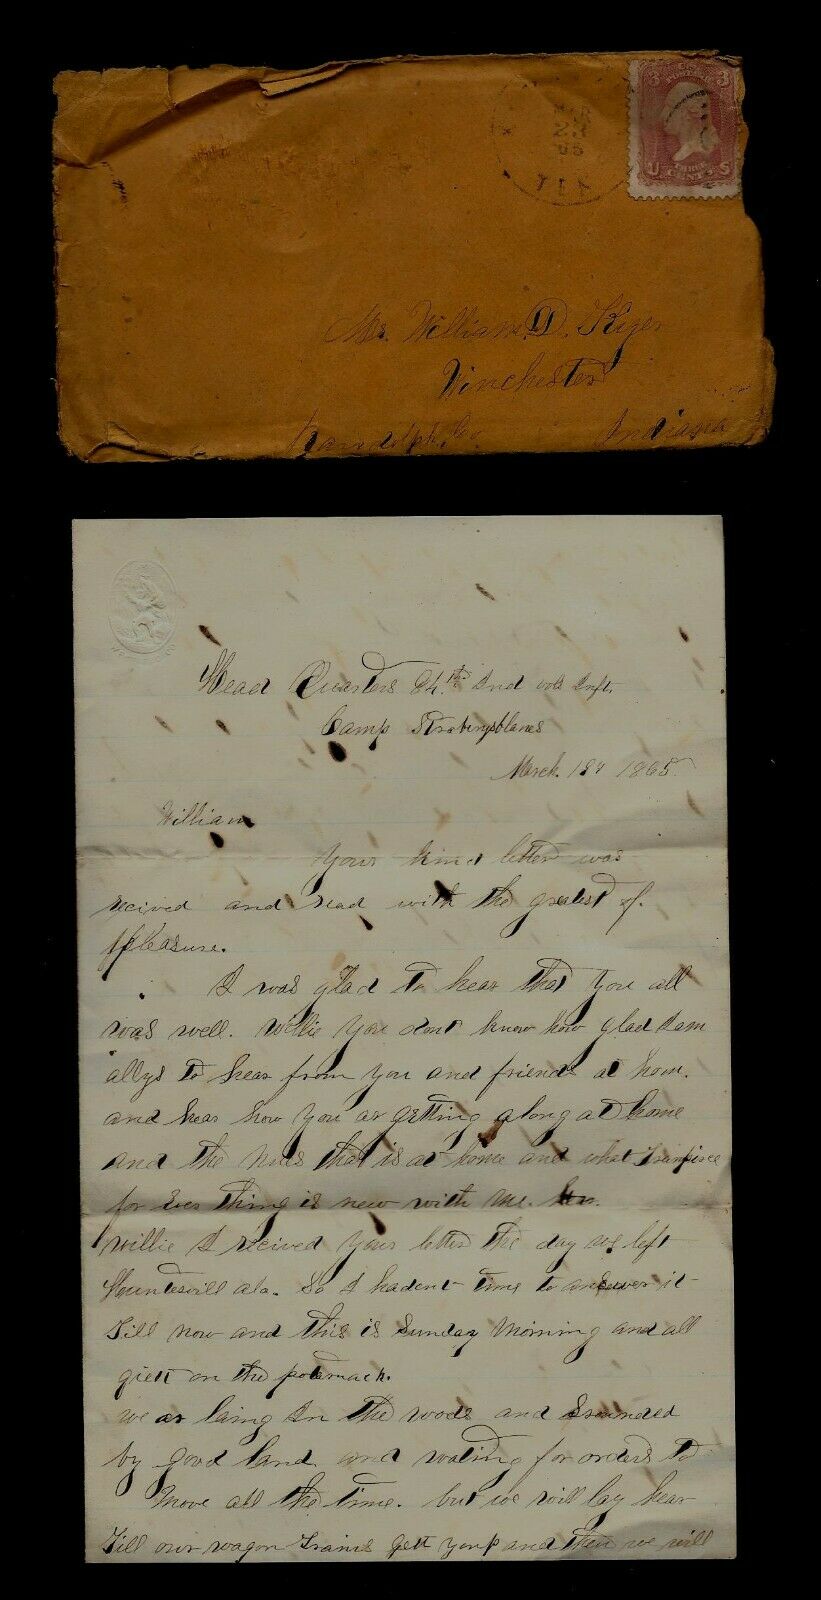 3 3
U S
THREE
CENTS
Mr. William D. Kizer
Winchester
Randolph, Co Indiana
Head Quarters 84th Ind vols Inft.
Camp Strabrysblanes
March. 19th 1865.
William
Your kind letter was
recived and read with the greatest of.
pleasure.
I was glad to hear that you all
was well. Willie you dont know how glad I am
allys to hear from you and friends at hom.
and hear how you ar getting along at home
and the nues that is at home and what
for ever thing is new with me.
Willie I recived your letter the day we left
Huntesvill ala. So I hadent time to answer it
Till now and this is Sunday Morning and all
qiett on the potomack.
we ar laing In the woods and srounded
by good land and wating for orders to
Move all the time. but we will lay hear
Till our wagon Trains gett yonp and then we will